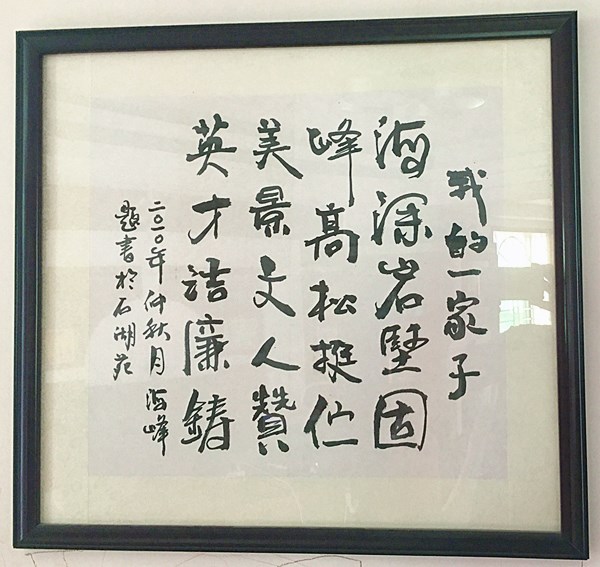 我的一家子
海深岩堅固
峰高松挺伫
美景文人贊
英才洁廉铸
二〇一〇年仲秋月海峰
题書於石湖苑